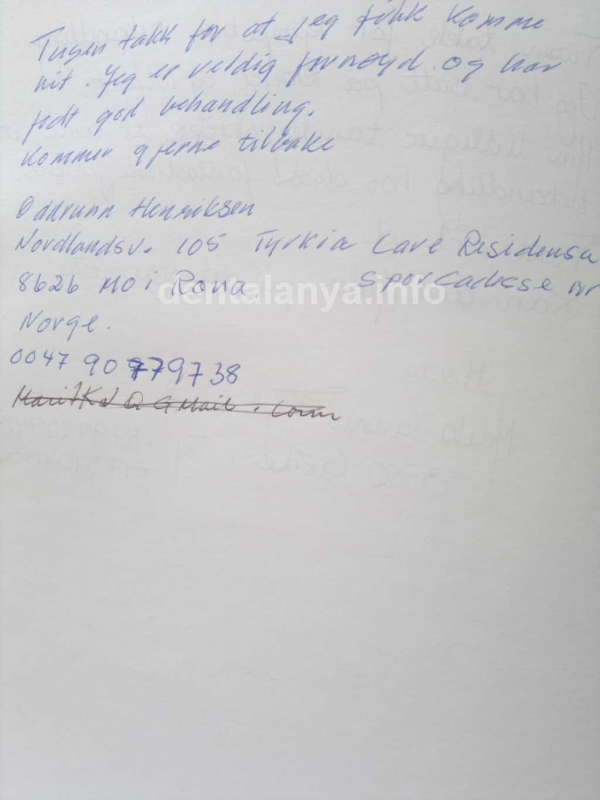 Tusen takk for at jeg fikk komme
hit. Jeg er veldig fornøyd og har
fått god behandling.
Kommer gjerne tilbake
Oddrunn Henriksen
Nordlandsv. 105 Tyrkia Cave Residensa
8626 Mo i Rana
Norge.
0047 90979738
dentalanya.info